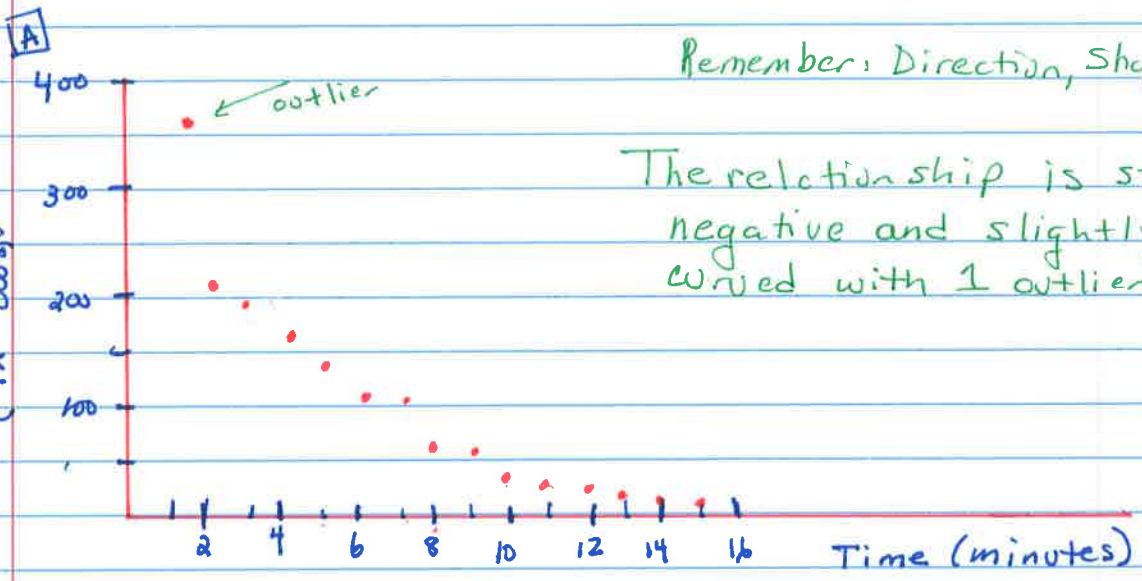 A
Remember: Direction, Sha
400
outlier
300
The relationship is s
negative and slightl
200
curved with 1 outlier
100
2 4 6 8 10 12 14 16
Time (minutes)